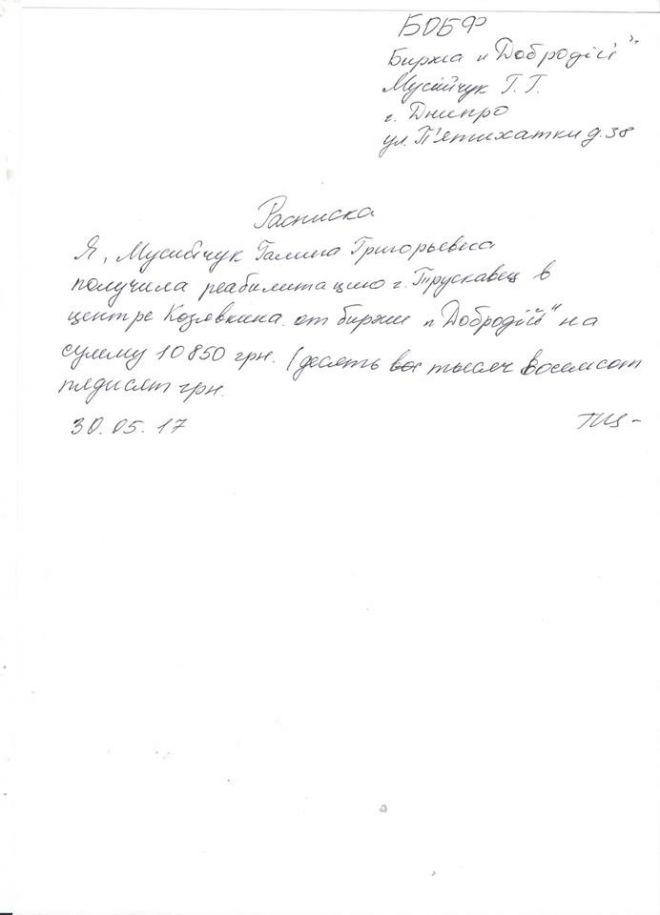 БОБФ
Биржа „Добродій"
Мусійчук Г.Г.
г. Днипро
ул. П'ятихатки д. 38
Расписка
Я, Мусийчук Галина Григорьевна
получила реабилитацию г. Трускавец в
центре Козявкина от биржи „Добродій" на
сумму 10 850 грн. (десять вос тысяч восемсот
пядисят грн.
30.05.17